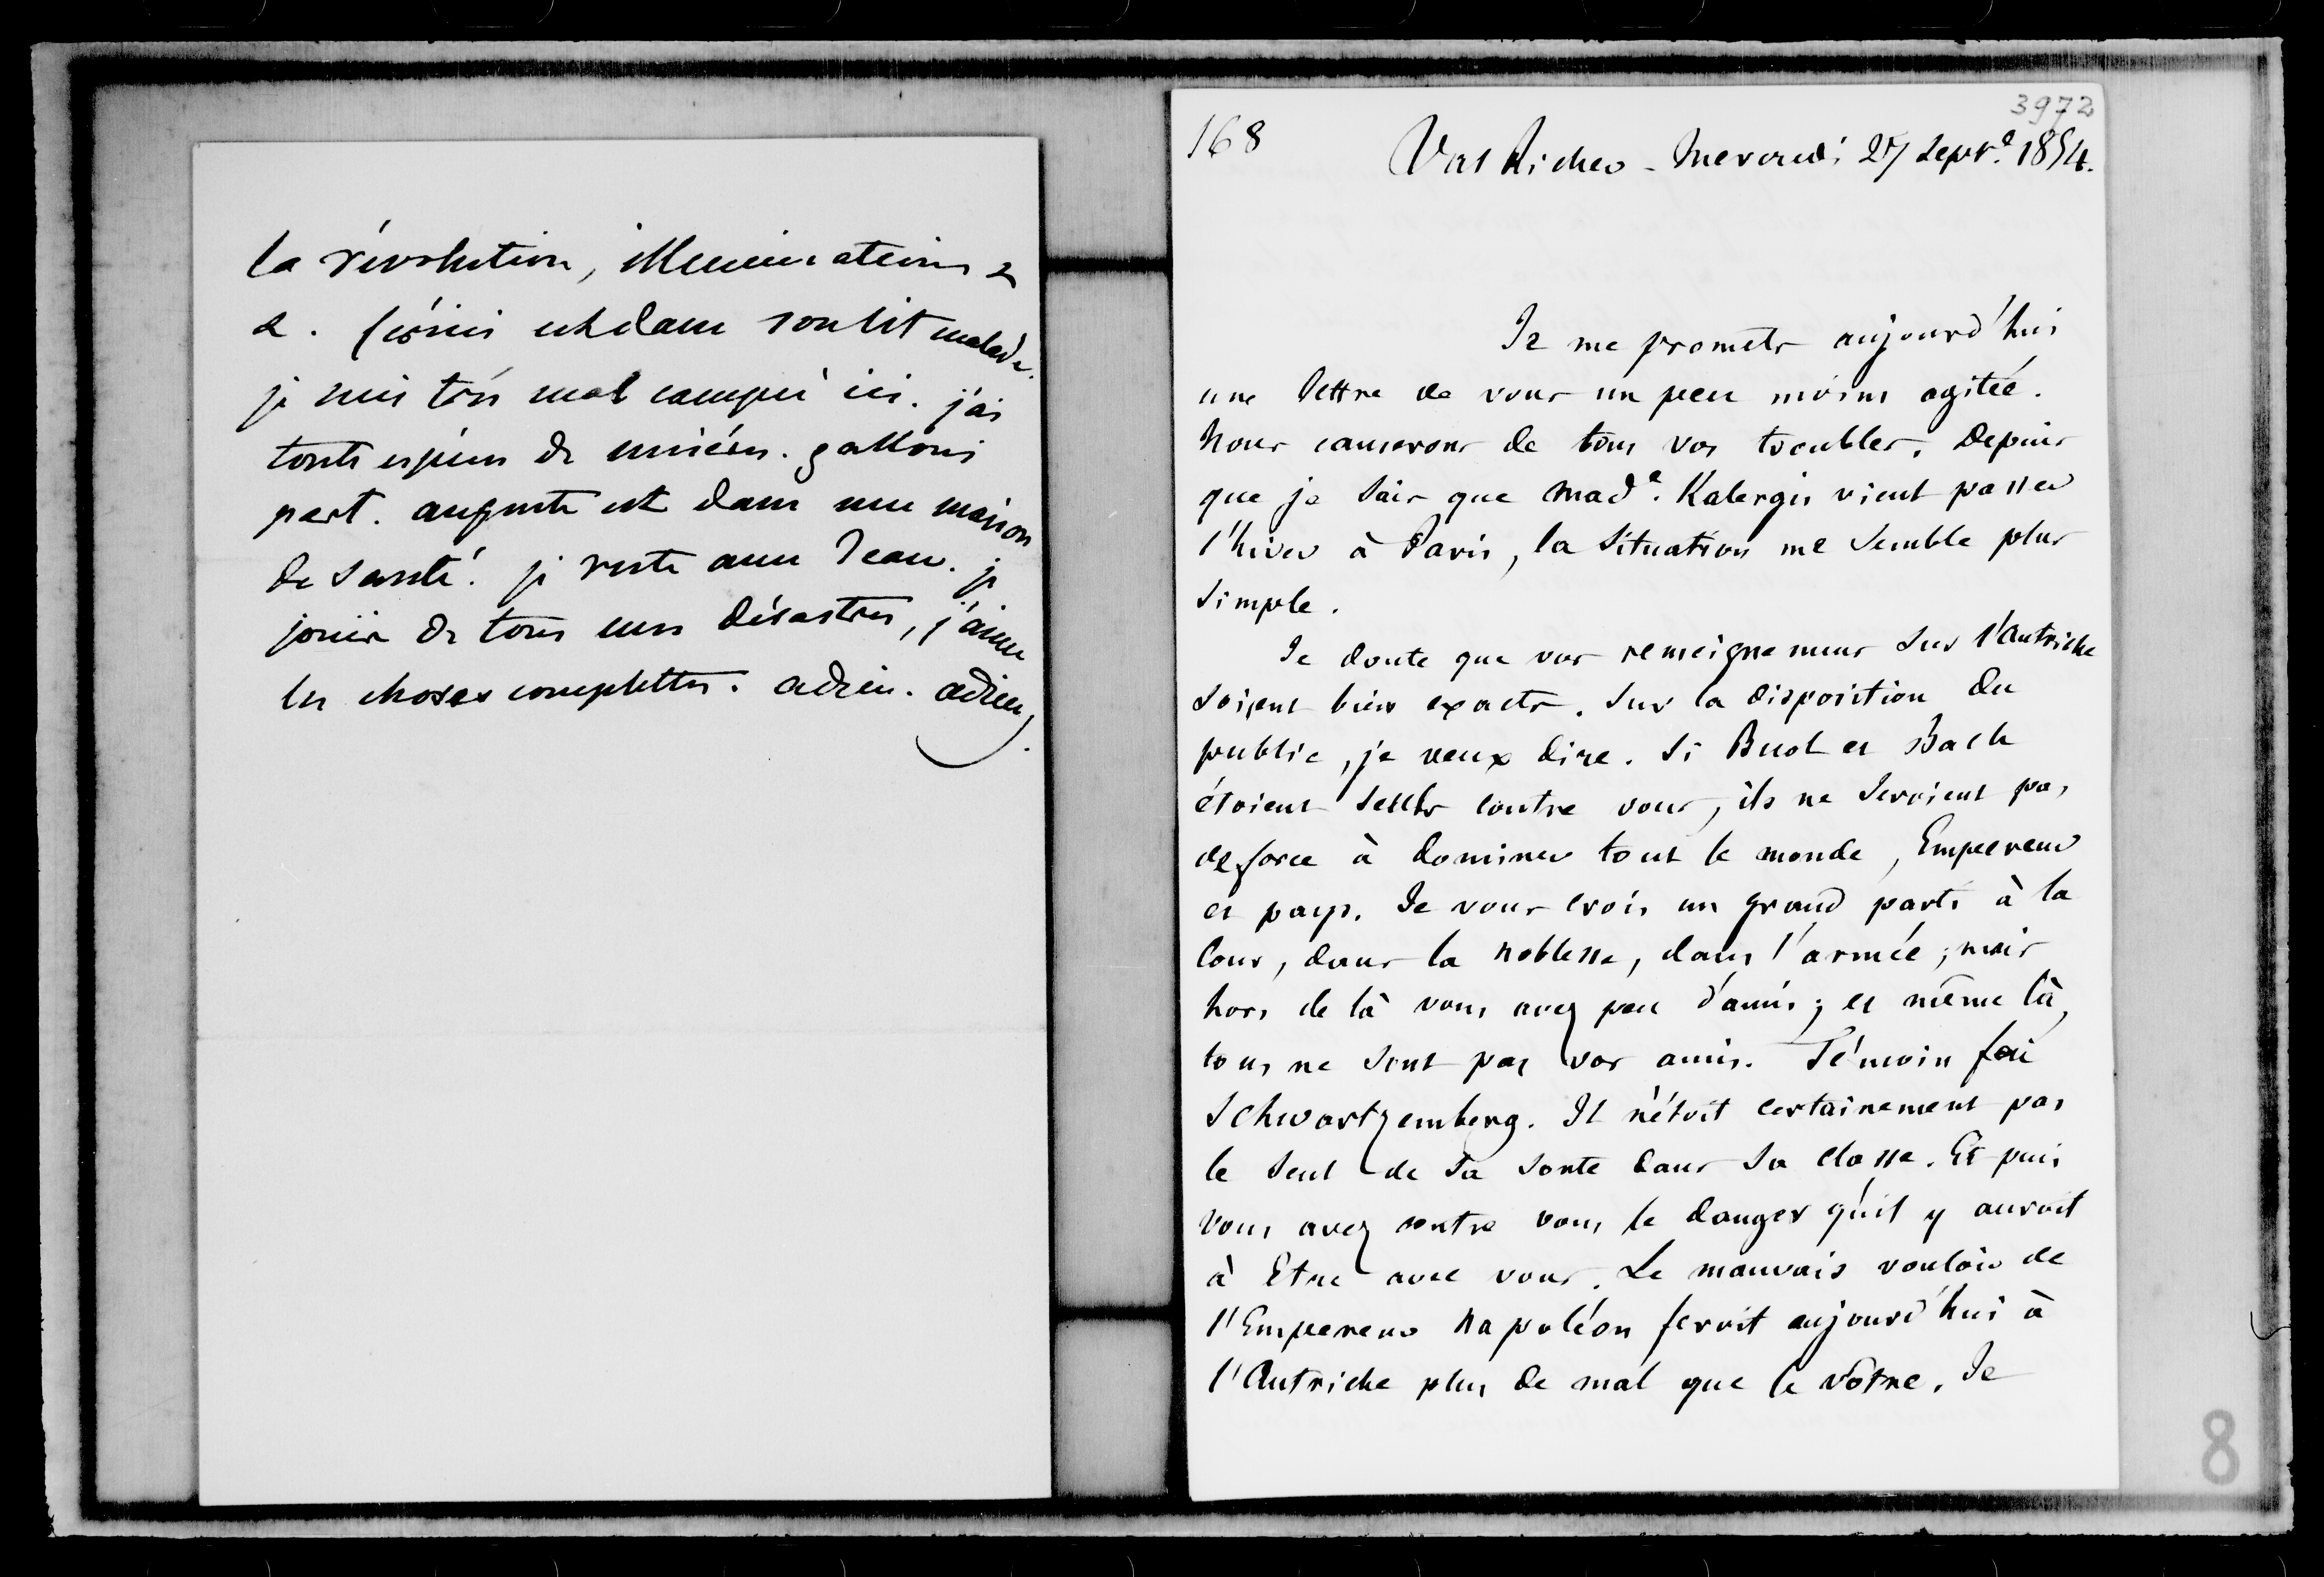 la révolution, illuminations &
&. fermis est dans son lit malade.
je suis très mal campée ici. j'ai
toute espèce de misères. gallois
part. auguste est dans une maison
de santé. je reste avec Jean. je
jouis de tous mes désastres, j'aime
les choses complettes. adieu. adieu.
3972
168
Val Richer - Mercredi 27 Sept.e 1854.
Je me promets aujourd'hui
une lettre de vous un peu moins agitée.
Nous causerons de tous vos troubles. Depuis
que je sais que Made. Kalergis vient passer
l'hiver à Paris, la situation me semble plus
simple.
Je doute que vos renseignemens sur l'Autriche
soient bien exacts. Sur la disposition du
public, je veux dire. Si Buol et Bach
étoient seuls contre vous, ils ne seroient pas
de force à dominer tout le monde, Empereur
et pays. Je vous crois un grand parti à la
Cour, dans la noblesse, dans l'armée; mais
hors de là vous avez peu d'amis; et même là,
tous ne sont pas vos amis. Témoin feu
Schwartzemberg. Il n'étoit certainement pas
le seul de sa sorte dans sa classe. Et puis
vous avez contre vous le danger qu'il y auroit
à Etre avec vous. Le mauvais vouloir de
l'Empereur Napoléon feroit aujourd'hui à
l'Autriche plus de mal que le vôtre. Je
8